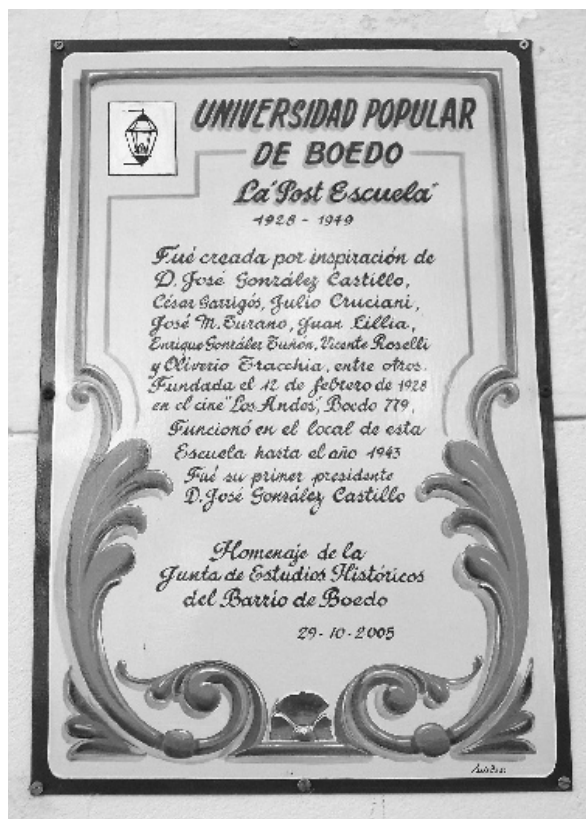 UNIVERSIDAD POPULAR
DE BOEDO
La "Post Escuela"
1928 - 1949
Fué creada por inspiración de
D. José González Castillo,
César Garrigós, Julio Cruciani,
José M. Turano, Juan Lillia,
Enrique González Tuñón, Vicente Roselli
y Oliverio Tracchia, entre otros.
Fundada el 12 de febrero de 1928
en el cine "Los Andes", Boedo 779,
Funcionó en el local de esta
Escuela hasta el año 1943
Fué su primer presidente
D. José González Castillo
Homenaje de la
Junta de Estudios Históricos
del Barrio de Boedo
29-10-2005